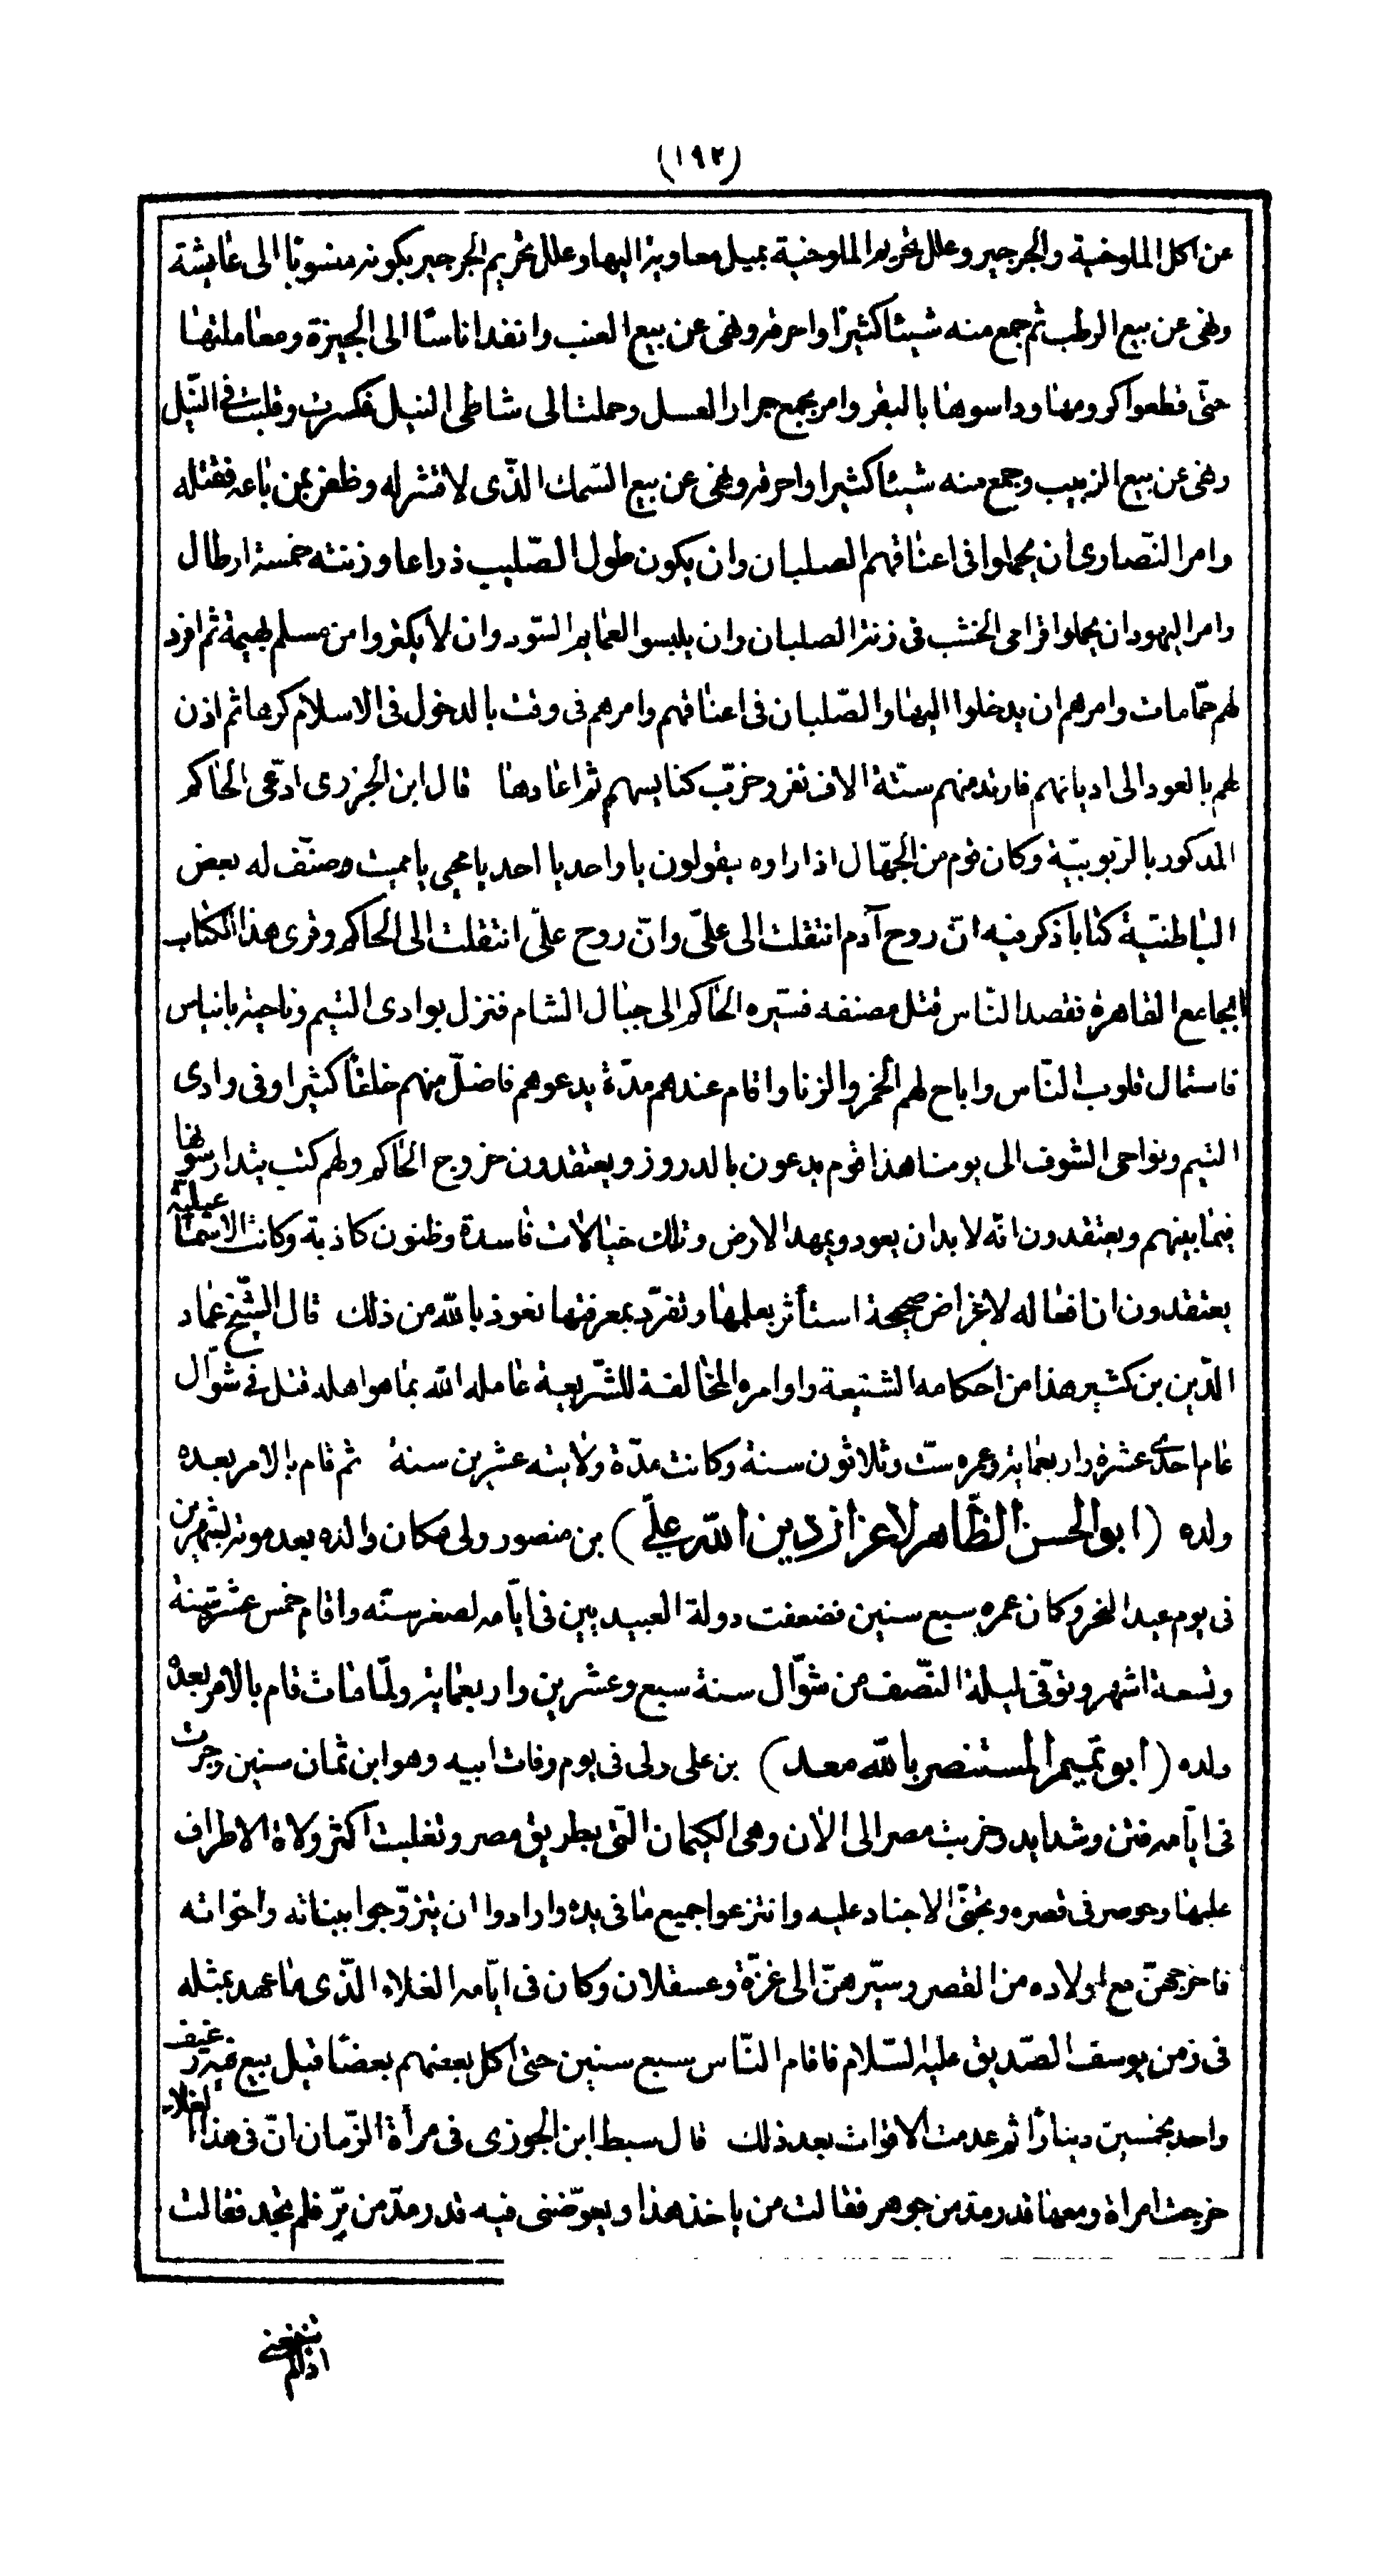 (١٩٢)
عن اكل الملوخية والجرجير وعلل تحريم الملوخية بميل معاوية اليها وعلل تحريم الجرجير بكونه منسوبا الى عايشة
ونهى عن بيع الرطب ثم جمع منه شيئا كثيرا واحرقه ونهى عن بيع العنب وانفد اناسا الى الجيزة ومعاملتها
حتّى قطعوا كرومها وداسوها بالبقر وامر بجمع جرار العسل وحملت الى شاطى النيل فكسرت وقلبت فى النّيل
ونهى عن بيع الزبيب وجمع منه شيئا كثيرا واحرقه ونهى عن بيع السّمك الذّى لا قشر له وظفر بمن باعه فقتله
وامر النّصارى ان يحملوا فى اعناقهم الصلبان وان يكون طول الصّليب ذراعا وزنته خمسة ارطال
وامر اليهود ان يحملوا قرامى الخشب فى زنة الصلبان وان يلبسوا العمايم السّود وان لا يكتروا من مسلم بهيمة ثم افرد
لهم حمّامات وامرهم ان يدخلوا اليها والصّلبان فى اعناقهم وامرهم فى وقت بالدخول فى الاسلام كرها ثم اذن
لهم بالعود الى اديانهم فارتد منهم ستّة الاف نفر وخرّب كنايسهم ثم اعادها قال ابن الجزرى ادّعى الحاكم
المذكور بالرّبوبيّة وكان قوم من الجهّال اذا راوه يقولون يا واحد يا احد يا محيى يا مميت وصنّف له بعض
الباطنيّة كتابا ذكر فيه انّ روح آدم انتقلت الى علىّ وانّ روح علىّ انتقلت الى الحاكم وقرى هذا الكتاب
بجامع القاهرة فقصد النّاس قتل مصنفه فسيّره الحاكم الى جبال الشام فنزل بوادى التيم وناحية بانياس
فاستمال قلوب النّاس واباح لهم الخمر والزنا واقام عندهم مدّة يدعوهم فاضلّ منهم خلقا كثيرا وفى وادى
التيم ونواحى الشوف الى يومنا هذا قوم يدعون بالدروز ويعتقدون خروج الحاكم ولهم كتب يتدارسونها
فيما بينهم ويعتقدون انّه لا بد ان يعود ويمهد الارض وتلك خيالات فاسدة وظنون كاذبة وكانت الاسماعيلية
يعتقدون ان افعاله لاغراض صحيحة استأثر بعلمها وتفرّد بمعرفتها نعوذ بالله من ذلك قال الشّيخ عماد
الدّين بن كثير هذا من احكامه الشنيعة واوامره المخالفة للشّريعة عامله الله بما هو اهله قتل فى شوّال
عام احدى عشرة واربعماية وعمره ستّ وثلاثون سنة وكانت مدّة ولايته عشرين سنة ثم قام بالامر بعده
ولده (ابو الحسن الظّاهر لاعزاز دين الله على) بن منصور ولى مكان والده بعد موته بشهرين
فى يوم عيد النحر وكان عمره سبع سنين فضعفت دولة العبيديين فى ايّامه لصغر سنّه واقام خمس عشرة سنة
وتسعة اشهر وتوفّى ليلة النّصف من شوّال سنة سبع وعشرين واربعماية ولمّا مات قام بالامر بعده
ولده (ابو تميم المستنصر بالله معد) بن على ولى فى يوم وفات ابيه وهو ابن ثمان سنين وجرت
فى ايّامه فتن وشدايد وخربت مصر الى الان وهى الكيمان الّتى بطريق مصر وتغلبت اكثر ولاة الاطراف
عليها وحوصر فى قصره وتجنّى الاجناد عليه وانتزعوا جميع ما فى يده وارادوا ان يتزوّجوا ببناته واخواته
فاخرجهنّ مع اولاده من القصر وسيّرهنّ الى غزّة وعسقلان وكان فى ايّامه الغلاء الّذى ما عهد بمثله
فى زمن يوسف الصّديق عليه السّلام فاقام النّاس سبع سنين حتى اكل بعضهم بعضا قيل بيع فيه رغيف
واحد بخمسين دينارا ثم عدمت الاقوات بعد ذلك قال سبط ابن الجوزى فى مرأة الزّمان انّ فى هذا الغلاء
خرجت امراة ومعها قدر مد من جوهر فقالت من ياخذ هذا ويعوّضنى فيه قدر مدّ من برّ فلم تجد فقالت
اذا لم تنفعنى